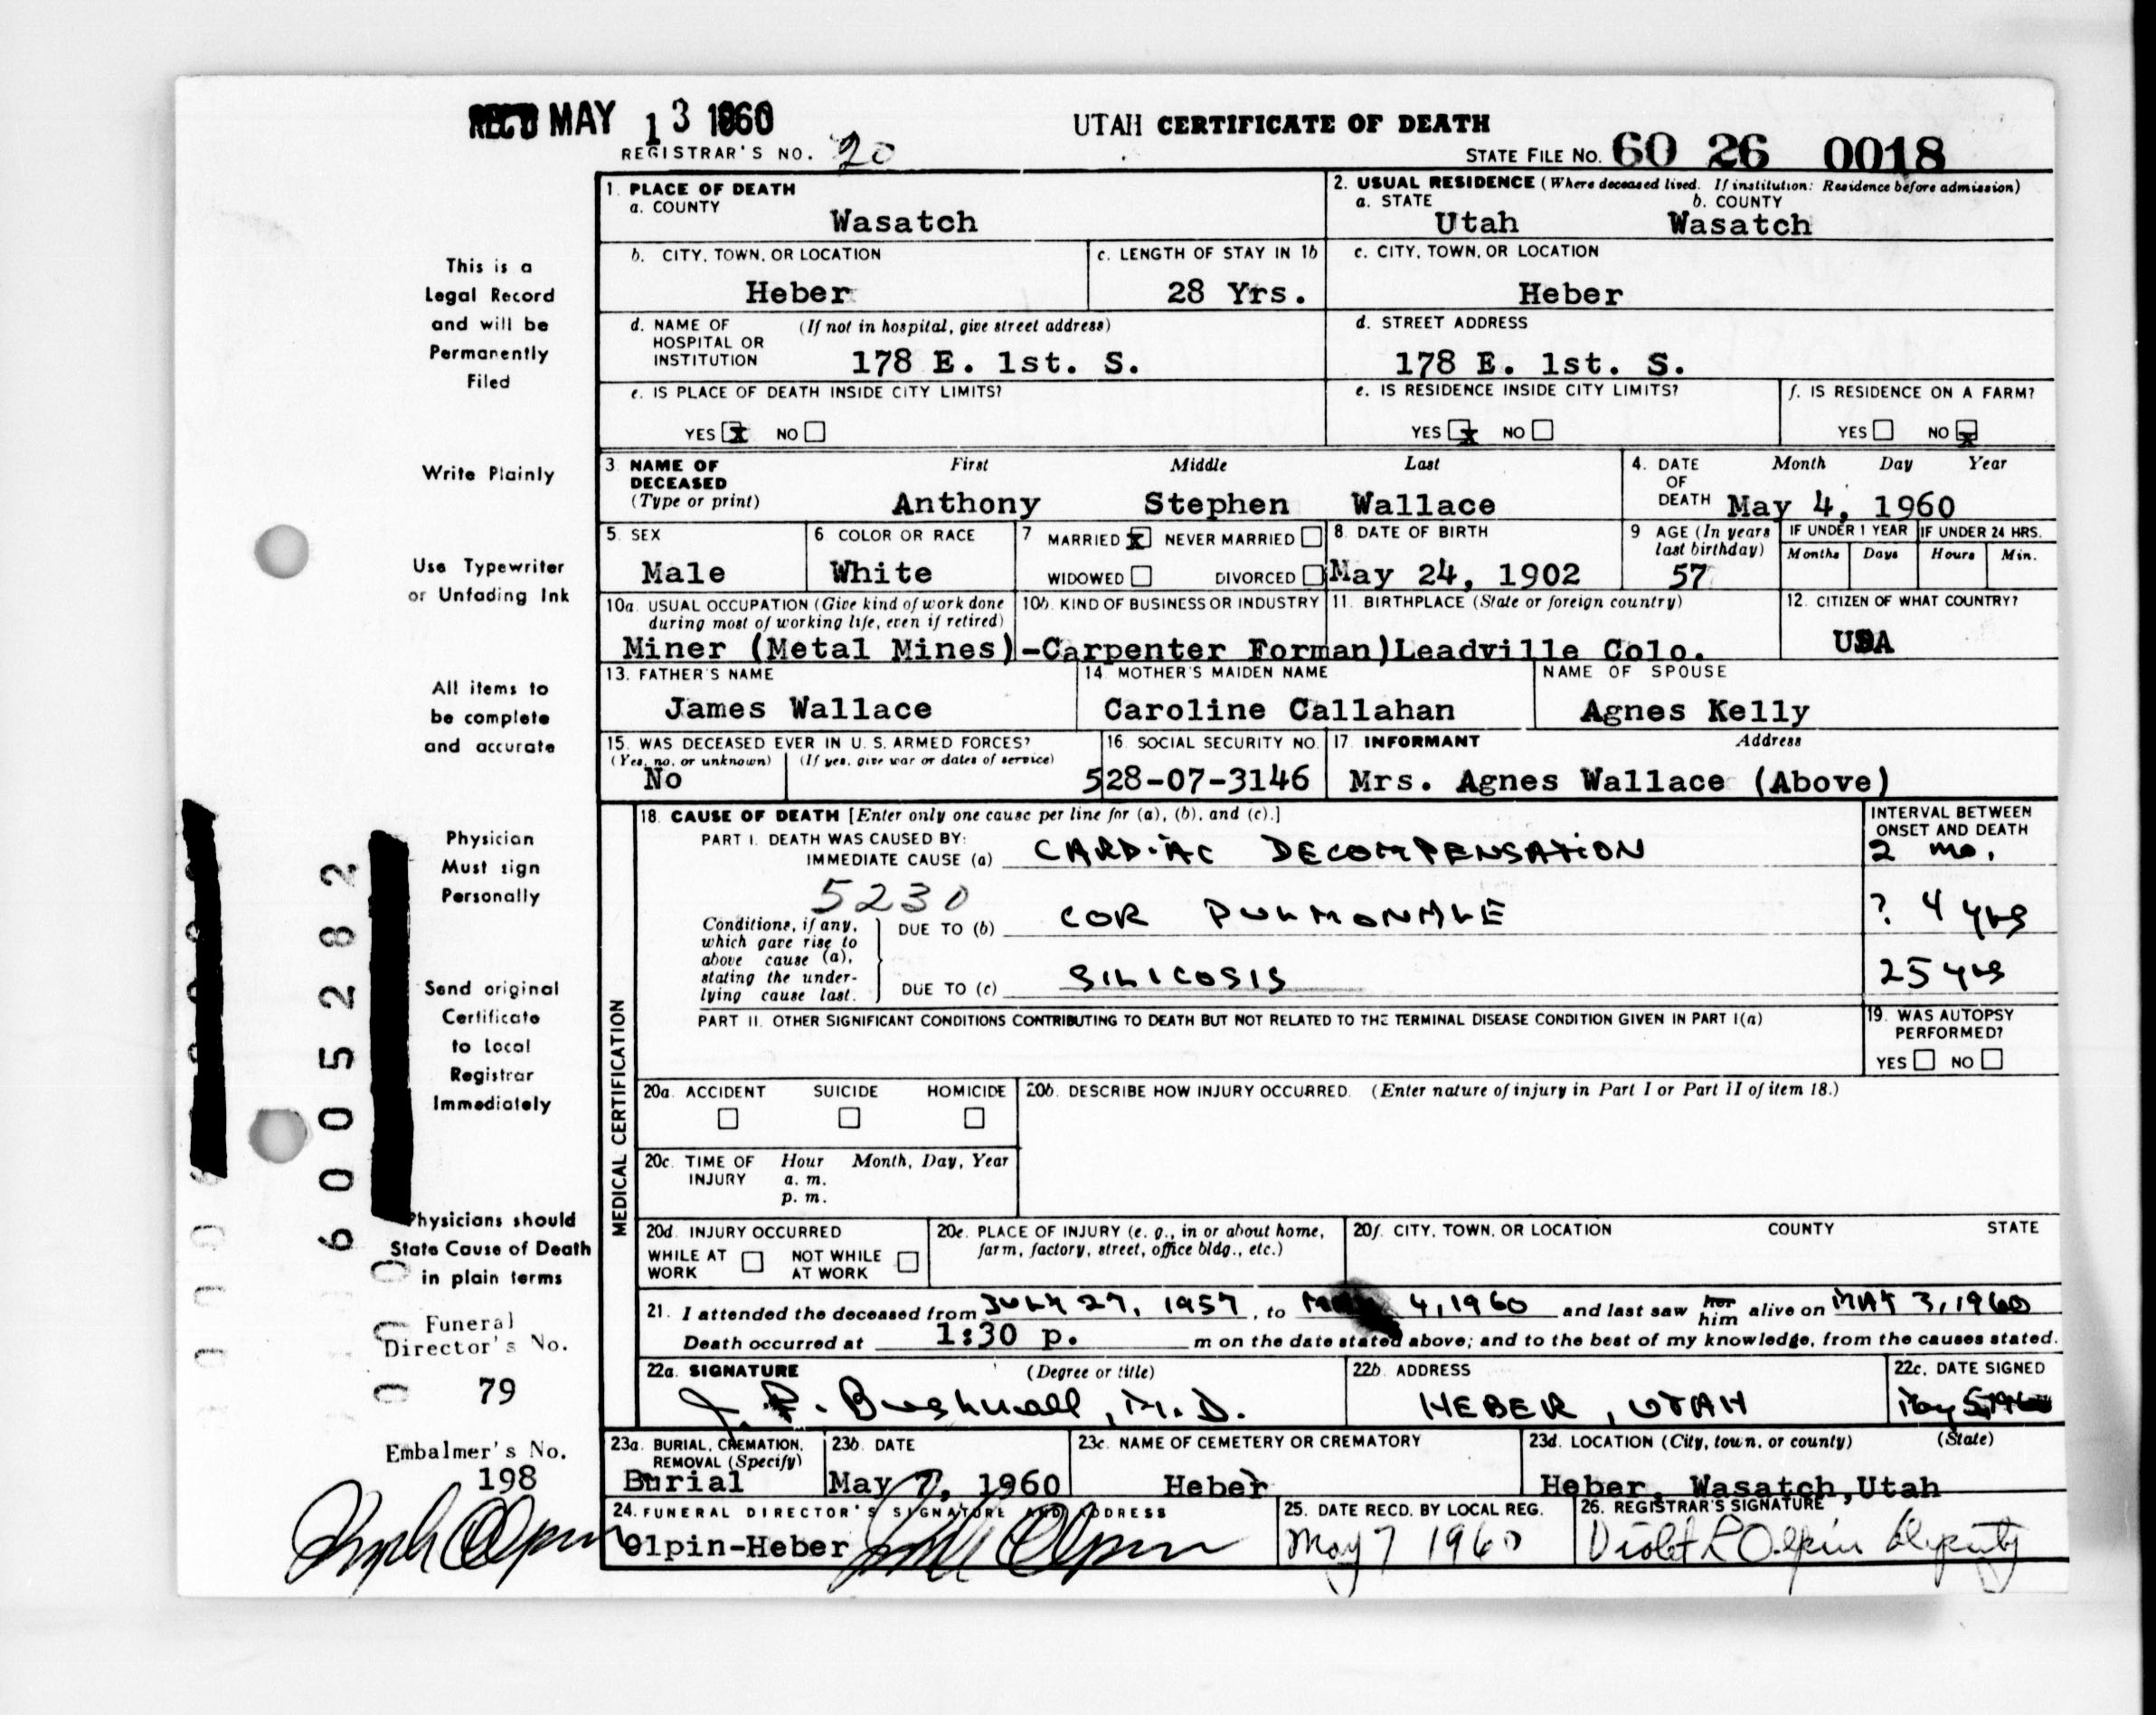 REC'D MAY 13 1960
UTAH CERTIFICATE OF DEATH
REGISTRAR'S NO. 20
STATE FILE NO. 60 26 0018
1. PLACE OF DEATH
a. COUNTY
Wasatch
2. USUAL RESIDENCE (Where deceased lived. If institution: Residence before admission)
a. STATE b. COUNTY
Utah Wasatch
b. CITY, TOWN, OR LOCATION
Heber
c. LENGTH OF STAY IN 1b
28 Yrs.
c. CITY, TOWN, OR LOCATION
Heber
d. NAME OF (If not in hospital, give street address)
HOSPITAL OR
INSTITUTION 178 E. 1st. S.
d. STREET ADDRESS
178 E. 1st. S.
e. IS PLACE OF DEATH INSIDE CITY LIMITS?
YES x NO
e. IS RESIDENCE INSIDE CITY LIMITS?
YES x NO
f. IS RESIDENCE ON A FARM?
YES NO x
3. NAME OF First Middle Last
DECEASED
(Type or print) Anthony Stephen Wallace
4. DATE Month Day Year
OF
DEATH May 4, 1960
5. SEX
Male
6 COLOR OR RACE
White
7 MARRIED x NEVER MARRIED
WIDOWED DIVORCED
8. DATE OF BIRTH
May 24, 1902
9 AGE (In years
last birthday)
57
IF UNDER 1 YEAR IF UNDER 24 HRS.
Months Days Hours Min.
10a. USUAL OCCUPATION (Give kind of work done
during most of working life, even if retired)
10b. KIND OF BUSINESS OR INDUSTRY
11. BIRTHPLACE (State or foreign country)
Miner (Metal Mines)-Carpenter Forman)Leadville Colo.
12. CITIZEN OF WHAT COUNTRY?
USA
13. FATHER'S NAME
James Wallace
14. MOTHER'S MAIDEN NAME
Caroline Callahan
NAME OF SPOUSE
Agnes Kelly
15. WAS DECEASED EVER IN U. S. ARMED FORCES?
(Yes, no, or unknown) (If yes, give war or dates of service)
No
16. SOCIAL SECURITY NO.
528-07-3146
17. INFORMANT Address
Mrs. Agnes Wallace (Above)
18. CAUSE OF DEATH [Enter only one cause per line for (a), (b), and (c).]
PART I. DEATH WAS CAUSED BY:
IMMEDIATE CAUSE (a) CARDIAC DECOMPENSATION
INTERVAL BETWEEN
ONSET AND DEATH
2 mo.
5230
Conditions, if any,
which gave rise to
above cause (a),
stating the under-
lying cause last.
DUE TO (b) COR PULMONALE ? 4 yrs
DUE TO (c) SILICOSIS 25 yrs
PART II. OTHER SIGNIFICANT CONDITIONS CONTRIBUTING TO DEATH BUT NOT RELATED TO THE TERMINAL DISEASE CONDITION GIVEN IN PART I(a)
19. WAS AUTOPSY
PERFORMED?
YES NO
MEDICAL CERTIFICATION
20a. ACCIDENT SUICIDE HOMICIDE
20b. DESCRIBE HOW INJURY OCCURRED. (Enter nature of injury in Part I or Part II of item 18.)
20c. TIME OF Hour Month, Day, Year
INJURY a. m.
p. m.
20d. INJURY OCCURRED
WHILE AT NOT WHILE
WORK AT WORK
20e. PLACE OF INJURY (e. g., in or about home,
farm, factory, street, office bldg., etc.)
20f. CITY, TOWN, OR LOCATION COUNTY STATE
21. I attended the deceased from JULY 27, 1957, to May 4, 1960 and last saw her him alive on MAY 3, 1960
Death occurred at 1:30 p. m on the date stated above; and to the best of my knowledge, from the causes stated.
22a. SIGNATURE (Degree or title)
J. R. Bushnell, M. D.
22b. ADDRESS
HEBER, UTAH
22c. DATE SIGNED
May 5, 1960
23a. BURIAL, CREMATION,
REMOVAL (Specify)
Burial
23b. DATE
May 7, 1960
23c. NAME OF CEMETERY OR CREMATORY
Heber
23d. LOCATION (City, town, or county) (State)
Heber, Wasatch, Utah
24. FUNERAL DIRECTOR'S SIGNATURE AND ADDRESS
Olpin-Heber
25. DATE RECD. BY LOCAL REG.
May 7 1960
26. REGISTRAR'S SIGNATURE
Violet L Olpin Deputy
This is a
Legal Record
and will be
Permanently
Filed
Write Plainly
Use Typewriter
or Unfading Ink
All items to
be complete
and accurate
Physician
Must sign
Personally
Send original
Certificate
to Local
Registrar
Immediately
Physicians should
State Cause of Death
in plain terms
6005282
Funeral
Director's No.
79
Embalmer's No.
198